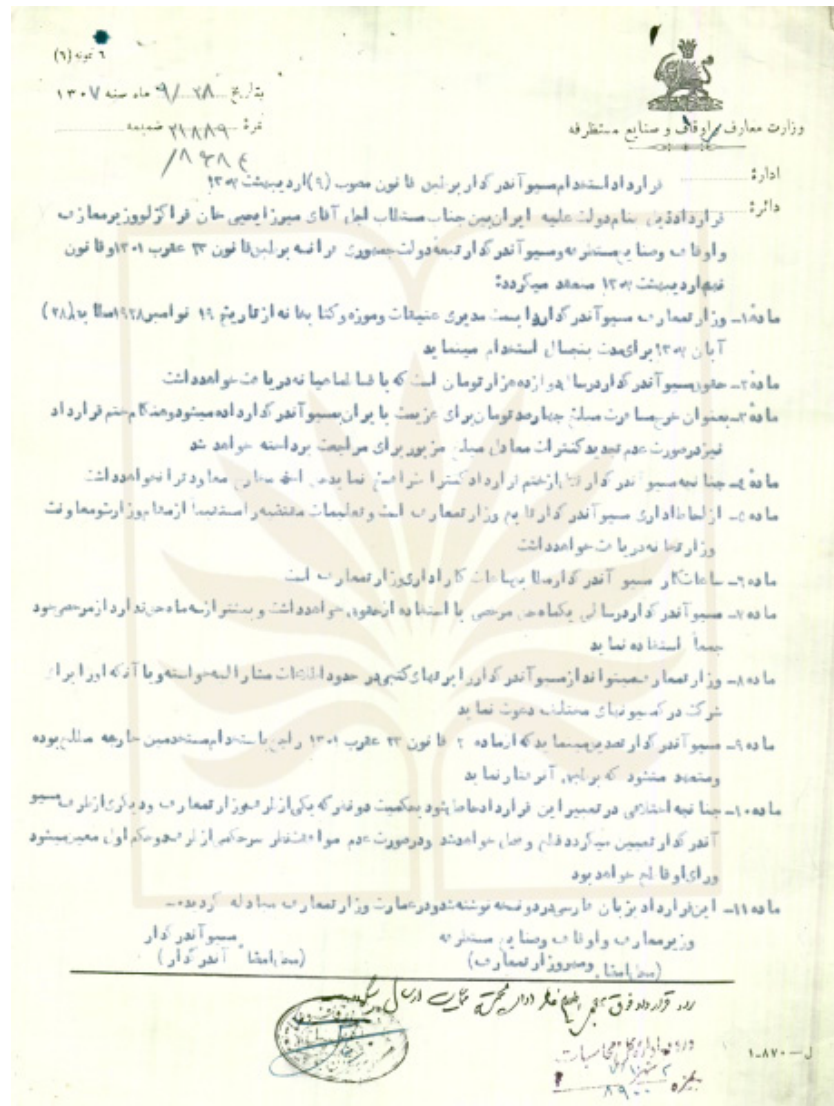 نمونه (٦)
بتاریخ ۹/۲۸ ماه سنه ۱۳۰۷
نمرهٔ ۲۱۸۸۹ ضمیمه
وزارت معارف و اوقاف و صنایع مستظرفه
ادارهٔ
دائرهٔ
قرارداد استخدام مسیو آندر گدار برطبق قانون مصوب (۹) اردیبهشت ۱۳۰۷
قرارداد ذیل بنام دولت علیه ایران بین جناب مستطاب اجل آقای میرزا یحیی خان قراگزلو وزیر معارف
و اوقاف وصنایع مستظرفه ومسیو آندر گدار تبعه دولت جمهوری فرانسه برطبق قانون ۲۳ عقرب ۱۳۰۱ وقانون
نهم اردیبهشت ۱۳۰۷ منعقد میگردد:
ماده۱ـ وزارتمعارف مسیو آندر گدار را بسمت مدیری عتیقات وموزه وکتابخانه ازتاریخ ۱۹ نوامبر ۱۹۲۸ مطابق (۲۸)
آبان ۱۳۰۷ برای مدت پنجسال استخدام مینماید
ماده۲ـ حقوق مسیو آندر گدار درسال دوازده هزار تومان است که باقساط ماهیانه دریافت خواهدداشت
ماده۳ـ بعنوان خرج مسافرت مبلغ چهارصد تومان برای عزیمت بایران بمسیو آندر گدار داده میشود وهنگام ختم قرارداد
نیز درصورت عدم تجدید کنترات معادل مبلغ مزبور برای مراجعت پرداخته خواهد شد
ماده۴ـ چنانچه مسیو آندر گدار قبل ازختم قرارداد کنترات را فسخ نماید حق اخذ مخارج معاودت را نخواهدداشت
ماده۵ـ ازلحاظ اداری مسیو آندر گدار تابع وزارتمعارف است وتعلیمات مقتضیه را مستقیماً ازمقام وزارت ومعاونت
وزارتخانه دریافت خواهدداشت
ماده۶ـ ساعات کار مسیو آندر گدار مطابق ساعات کار اداری وزارتمعارف است
ماده۷ـ مسیو آندر گدار درسالی یکماه حق مرخصی با استفاده ازحقوق خواهدداشت و بیشتر ازسه ماه حق ندارد ازمرخصی خود
جمعاً استفاده نماید
ماده۸ـ وزارتمعارف میتواند ازمسیو آندر گدار راپرتهای کتبی در حدود اطلاعات مشارالیه خواسته ویا آنکه اورا برای
شرکت درکمسیونهای مختلف دعوت نماید
ماده۹ـ مسیو آندر گدار تصدیق مینماید که ازماده ۲ قانون ۲۳ عقرب ۱۳۰۱ راجع باستخدام مستخدمین خارجه مطلع بوده
ومتعهد میشود که برطبق آن رفتار نماید
ماده۱۰ـ چنانچه اختلافی در تعبیر این قرارداد حاصل شود بحکمیت دونفر که یکی ازطرف وزارتمعارف ودیگری ازطرف مسیو
آندر گدار تعیین میگردد قطع و فصل خواهدشد ودرصورت عدم موافقت نظر سرحکمی ازطرف دوحکم اول معین میشود
ورای او قاطع خواهد بود
ماده۱۱ـ این قرارداد بزبان فارسی در دو نسخه نوشته شده ودرعمارت وزارتمعارف مبادله گردیده ـ
وزیر معارف واوقاف وصنایع مستظرفه
(محل امضا ومهر وزارتمعارف)
مسیو آندر گدار
(محل امضا آندر گدار)
ل ـ ١ـ٨٧٠
۸۹۰۰